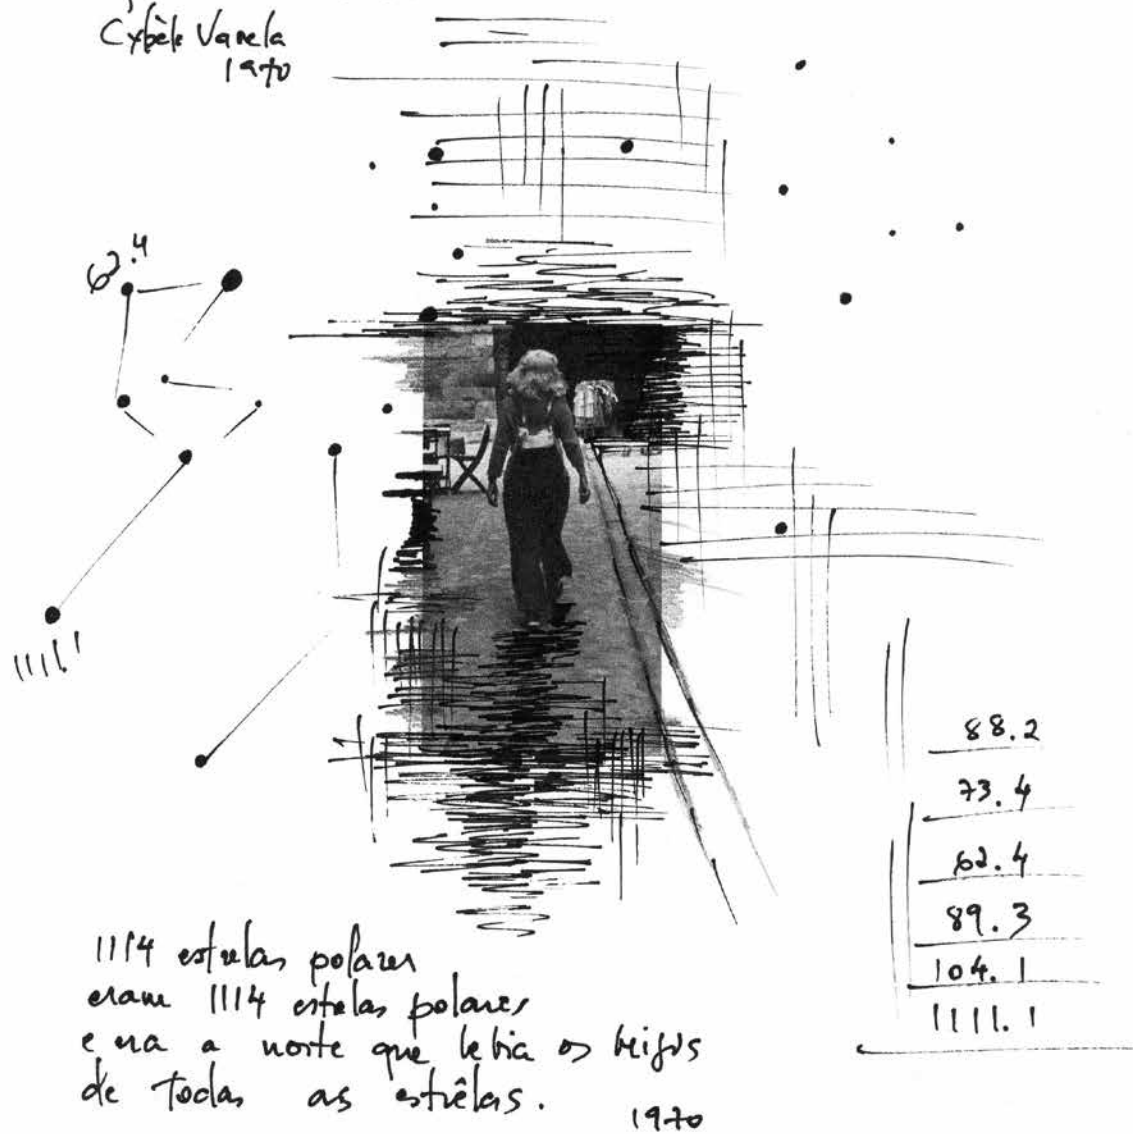 Cybèle Varela
1970
62.4
1111.1
88.2
73.4
62.4
89.3
104.1
1111.1
1114 estrelas polares
eram 1114 estrelas polares
e era a noite que bebia os beijos
de todas as estrêlas.
1970